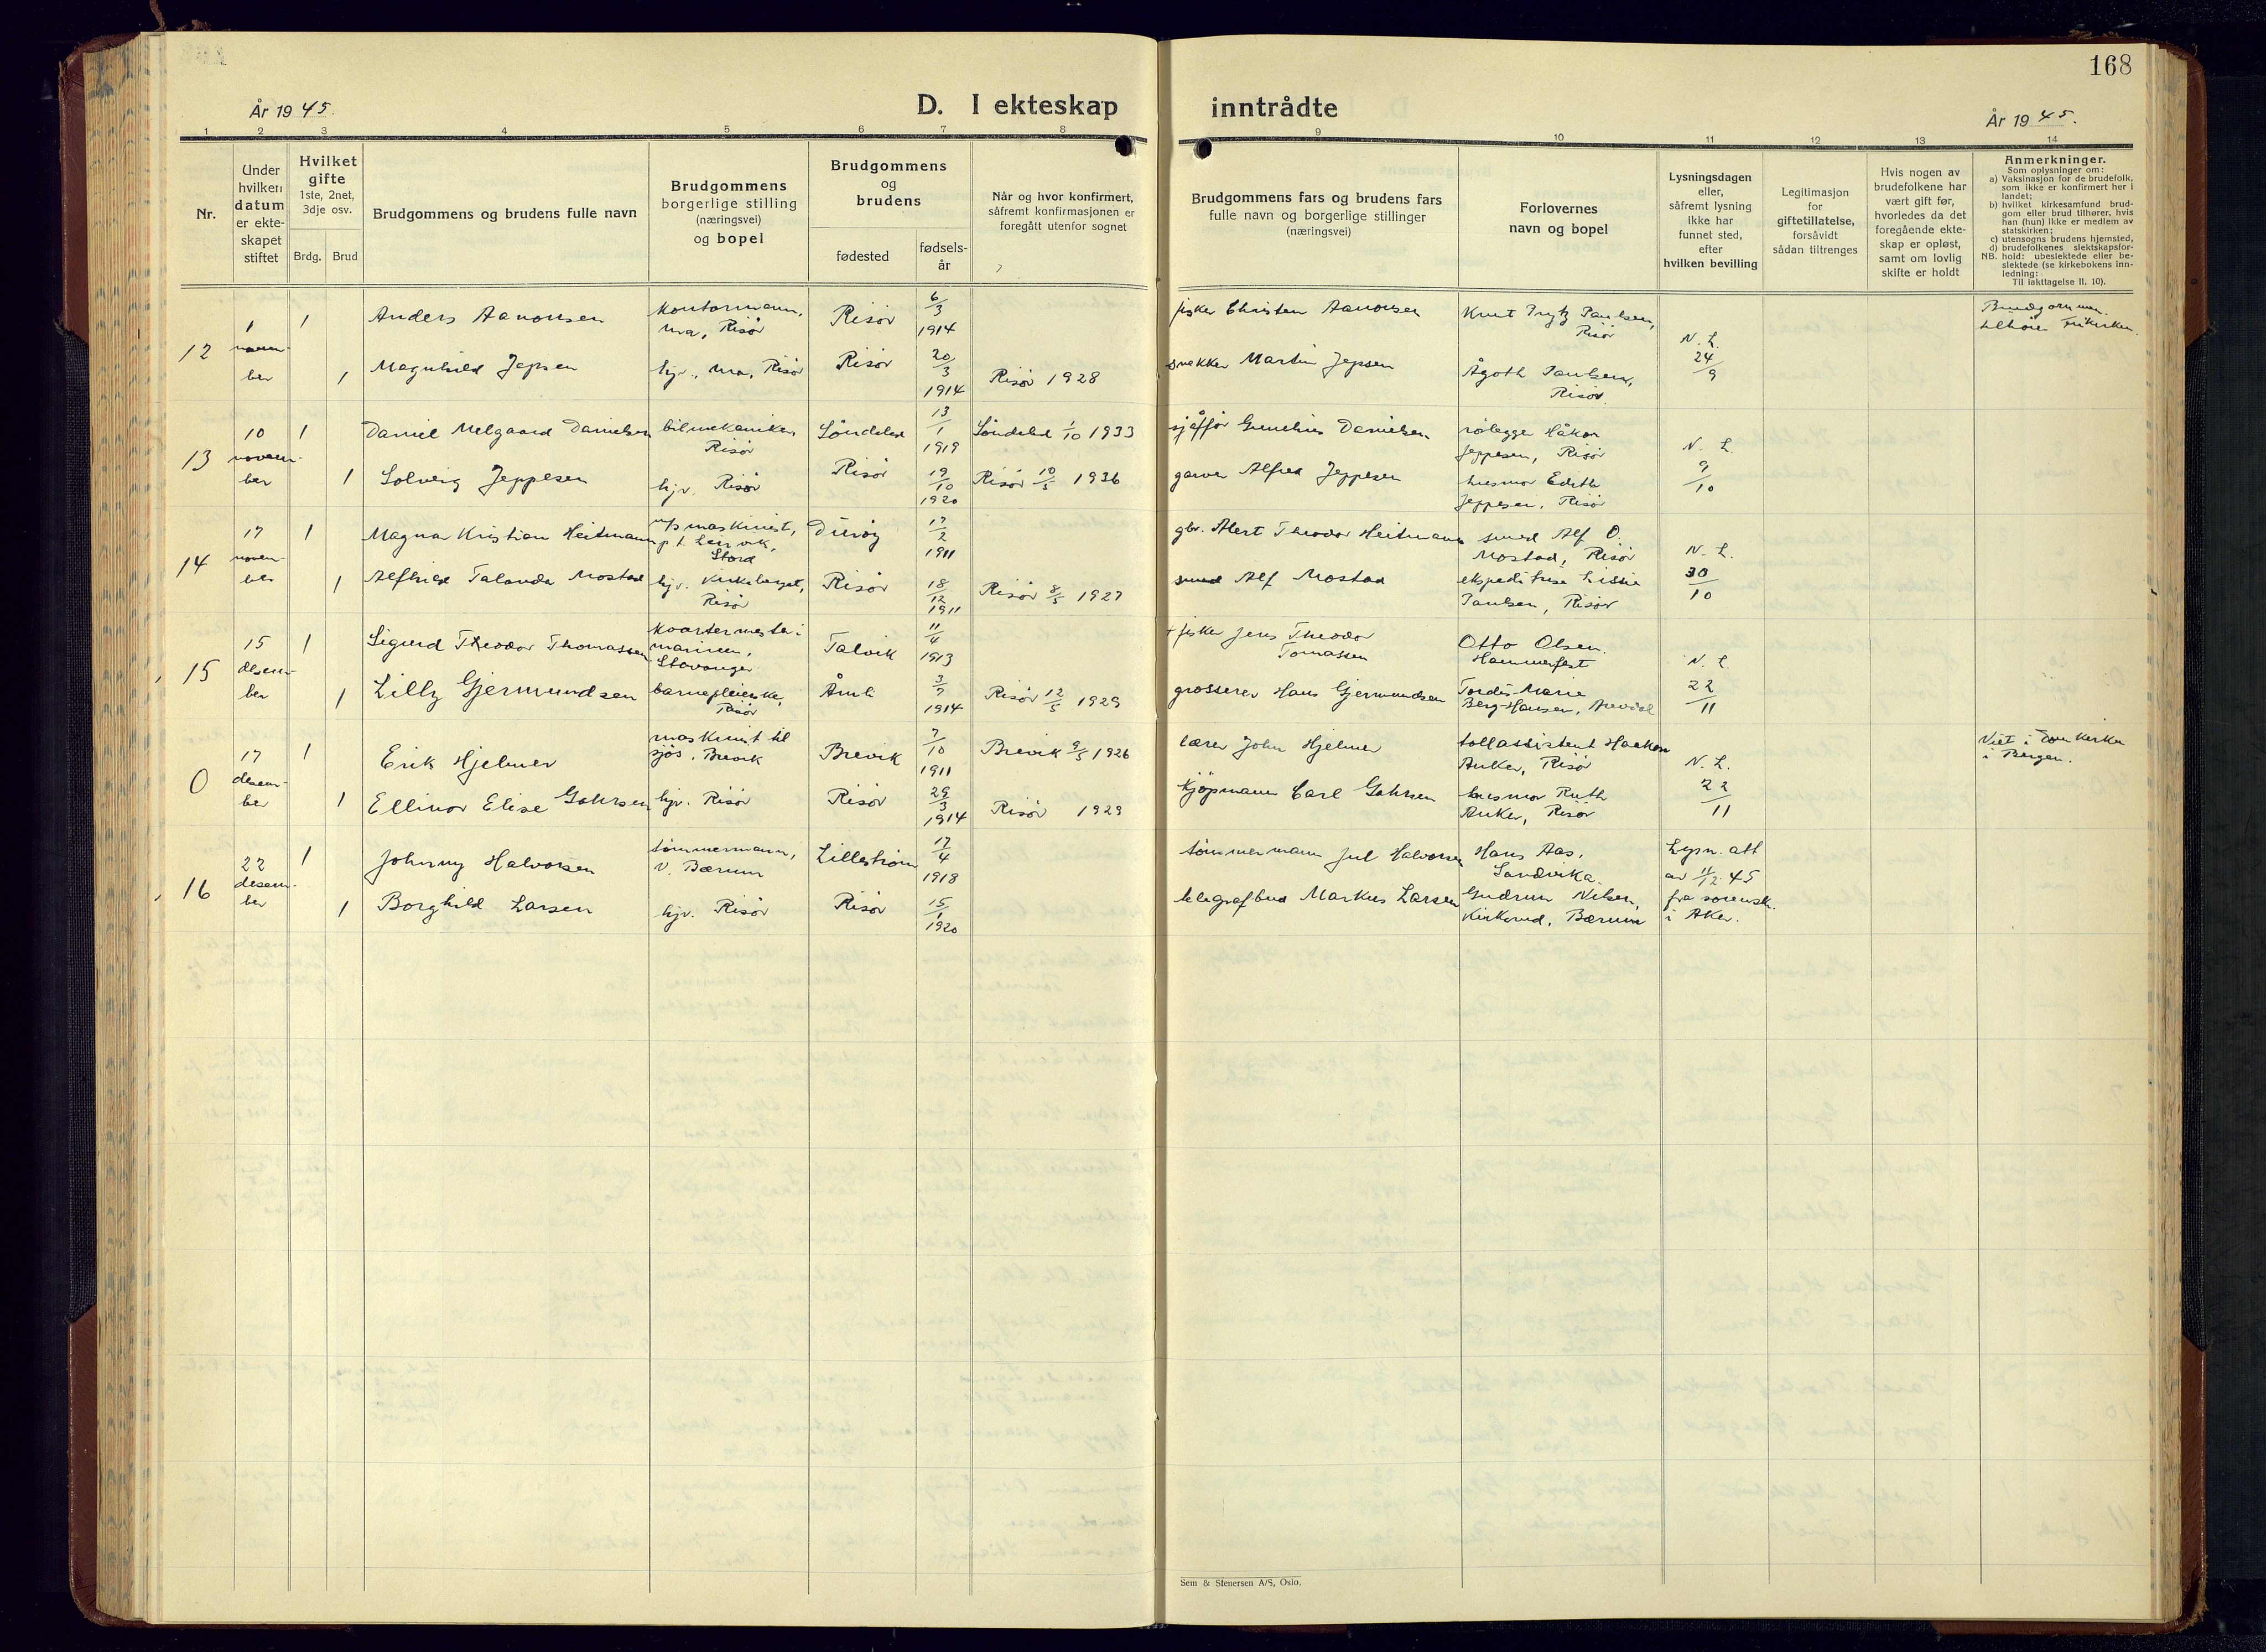 168
År 1945.
D. I ekteskap inntrådte
År 1945.
1 2 3 4 5 6 7 8 9 10 11 12 13 14
Nr.
Under
hvilken
datum
er ekte-
skapet
stiftet
Hvilket
gifte
1ste, 2net,
3dje osv.
Brdg. Brud
Brudgommens og brudens fulle navn
Brudgommens
borgerlige stilling
(næringsvei)
og bopel
Brudgommens
og
brudens
fødested
fødsels-
år
Når og hvor konfirmert,
såfremt konfirmasjonen er
foregått utenfor sognet
Brudgommens fars og brudens fars
fulle navn og borgerlige stillinger
(næringsvei)
Forlovernes
navn og bopel
Lysningsdagen
eller,
såfremt lysning
ikke har
funnet sted,
efter
hvilken bevilling
Legitimasjon
for
giftetillatelse,
forsåvidt
sådan tiltrenges
Hvis nogen av
brudefolkene har
vært gift før,
hvorledes da det
foregående ekte-
skap er opløst,
samt om lovlig
skifte er holdt
Anmerkninger.
Som oplysninger om:
a) Vaksinasjon for de brudefolk,
som ikke er konfirmert her i
landet;
b) hvilket kirkesamfund brud-
gom eller brud tilhører, hvis
han (hun) ikke er medlem av
statskirken;
c) utensogns brudens hjemsted,
d) brudefolkenes slektskapsfor-
NB. hold: ubeslektede eller be-
slektede (se kirkebokens inn-
ledning:
Til iakttagelse II. 10).
12
1
novem-
ber
1
Anders Aanonsen
kontormann,
Ura, Risør
Risør
6/3
1914
fisker Christen Aanonsen
Knut Trytz Paulsen,
Risør
N. L.
24/9
Brudgommen
tilhører Frikirken
1
Magnhild Jepsen
hjv., Ura, Risør
Risør
20/3
1914
Risør 1928
snekker Martin Jepsen
Ågoth Paulsen,
Risør.
13
10
novem-
ber
1
Daniel Melgaard Danielsen
bilmekaniker
Risør
Søndeled
13/1
1919
Søndeled 1/10 1933
sjåffør Gunelius Danielsen
rørlegger Håkon
Jeppesen, Risør
N. L.
9/10
1
Solveig Jeppesen
hjv. Risør
Risør
19/10
1920
Risør 10/5 1936
garver Alfred Jeppesen
husmor Edith
Jeppesen, Risør
14
17
novem-
ber
1
Magnar Kristian Heitmann
m/s maskinist,
p.t. Leirvik,
Stord
Dürøy
17/2
1911
gbr. Alert Theodor Heitmann
smed Alf O.
Mostad, Risør
N. L.
30/10
1
Alfhild Talanda Mostad
hjv. Kirkeberget,
Risør
Risør
18/12
1911
Risør 8/5 1927
smed Alf Mostad
ekspeditrise Lissie
Paulsen, Risør
15
15
desem-
ber
1
Sigurd Theodor Thomassen
kvartermester i
marinen,
Stavanger
Talvik
11/4
1913
+ fisker Jens Theodor
Tomassen
Otto Olsen.
Hammerfest
N. L.
22/11
1
Lilly Gjermundsen
barnepleierske,
Risør
Åmli
3/7
1914
Risør 12/5 1929
grosserer Hans Gjermundsen
Tordis-Marie
Berg-Hansen, Arendal
0
17
desem-
ber
1
Erik Hjelmer
maskinist til
sjøs, Brevik
Brevik
7/10
1911
Brevik 9/5 1926
lærer John Hjelmer
tollassistent Haakon
Anker, Risør
N. L.
22/11
Viet i Domkirken
i Bergen.
1
Ellinor Elise Gahrsen
hjv. Risør
Risør
29/3
1914
Risør 1929
Kjøpmann Carl Gahrsen
husmor Ruth
Anker, Risør
16
22
desem-
ber
1
Johnny Halvorsen
tømmermann,
V. Bærum
Lillestrøm
17/4
1918
tømmermann Jul Halvorsen
Hans Aas,
Sandvika.
Lysn. att
av 11/12 45
fra sorensk.
i Aker.
1
Borghild Larsen
hjv. Risør
Risør
15/1
1920
telegrafbud Markus Larsen
Gudrun Nilsen,
Kirkerud, Bærum
Sem & Stenersen A/S, Oslo.